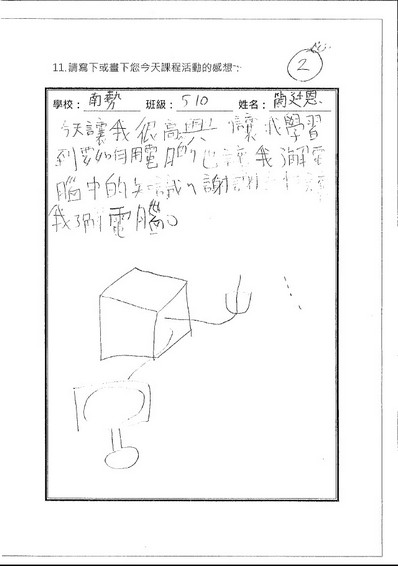 2
11.請寫下或畫下您今天課程活動的感想:
學校: 南勢 班級: 510 姓名: 陶廷恩
今天讓我很高興 讓我學習
到要如何用電腦也讓我 解電
腦中的知識 謝謝
我 電腦。